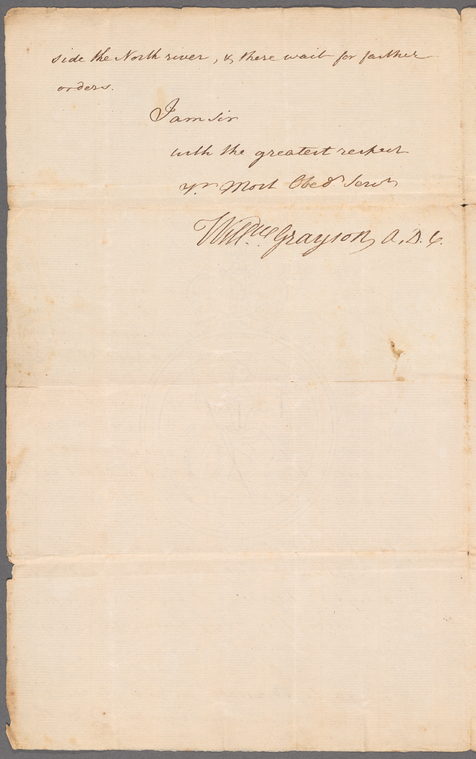 side the North river, & there wait for farther
orders.
I am sir
with the greatest respect
Yr. Most Obed Servt
Willm Grayson A. D. C.